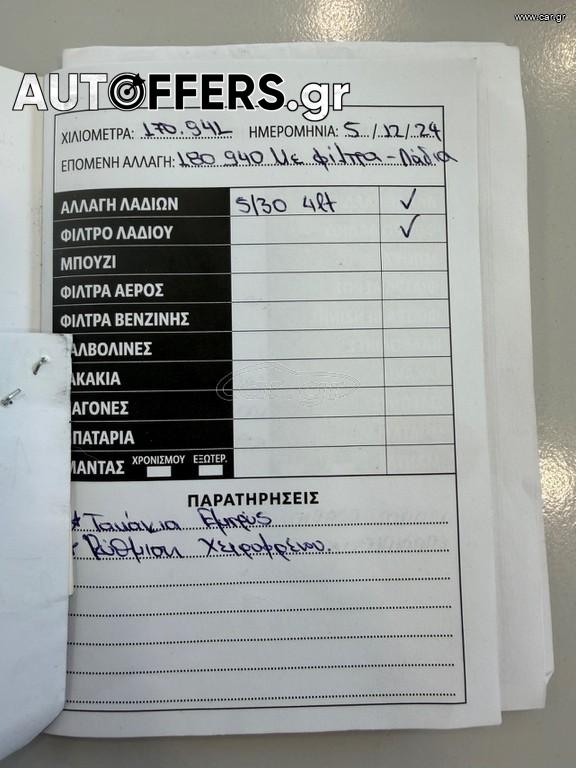 www.car.gr
AUTOFFERS.gr
ΧΙΛΙΟΜΕΤΡΑ: 170.941 ΗΜΕΡΟΜΗΝΙΑ: 5/12/24
ΕΠΟΜΕΝΗ ΑΛΛΑΓΗ: 180 940 Με φίλτρα - Λάδια
ΑΛΛΑΓΗ ΛΑΔΙΩΝ 5/30 4lt ✓
ΦΙΛΤΡΟ ΛΑΔΙΟΥ ✓
ΜΠΟΥΖΙ
ΦΙΛΤΡΑ ΑΕΡΟΣ
ΦΙΛΤΡΑ ΒΕΝΖΙΝΗΣ
ΑΛΒΟΛΙΝΕΣ
ΑΚΑΚΙΑ
ΙΑΓΟΝΕΣ
ΠΑΤΑΡΙΑ
ΜΑΝΤΑΣ ΧΡΟΝΙΣΜΟΥ ΕΞΩΤΕΡ.
ΠΑΡΑΤΗΡΗΣΕΙΣ
* Τακάκια Εμπρός
Ρύθμιση Χειροφρένου.